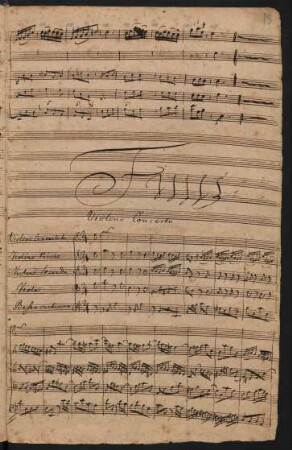 19
Finis
Violino Concerto
Violino Concertato
Violino Primo
Violino Secondo
Viola
Basso continuo